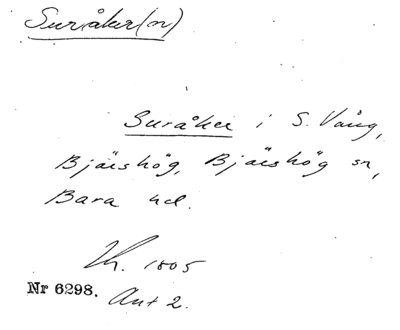 Suråker(n)
Suråker i S. Vång,
Bjärshög, Bjärshög sn,
Bara hd.
Nr 6298. 1805
Akt 2.